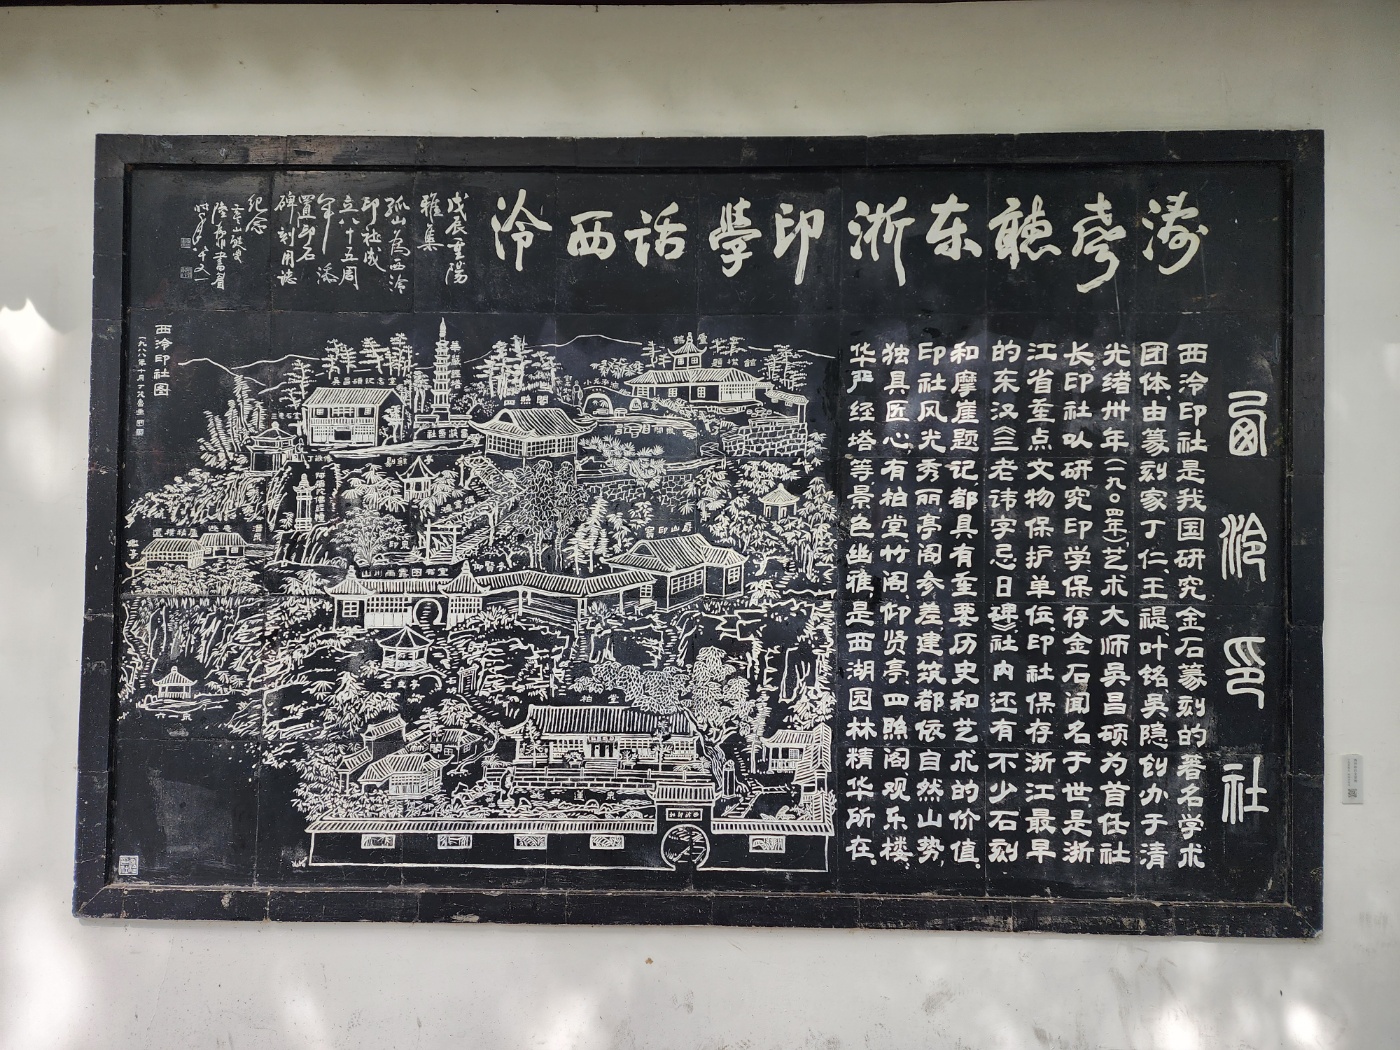 涛声听东浙印学话西泠
戊辰重阳
雅集
孤山为西泠
印社成
立八十五周
年
添
置印石
碑刻用誌
纪念
西泠印社
西泠印社是我国研究金石篆刻的著名学术
团体.由篆刻家丁仁.王禔.叶铭.吴隐创办于清
光绪卅年(一九〇四年)艺术大师吴昌硕为首任社
长.印社以研究印学保存金石闻名于世是浙
江省重点文物保护单位.印社保存浙江最早
的东汉《三老讳字忌日碑》社内还有不少石刻
和摩崖题记都具有重要历史和艺术的价值.
印社风光秀丽.亭阁参差建筑都依自然山势.
独具匠心.有柏堂竹阁仰贤亭四照阁观乐楼.
华严经塔等景色幽雅是西湖园林精华所在.
西泠印社图